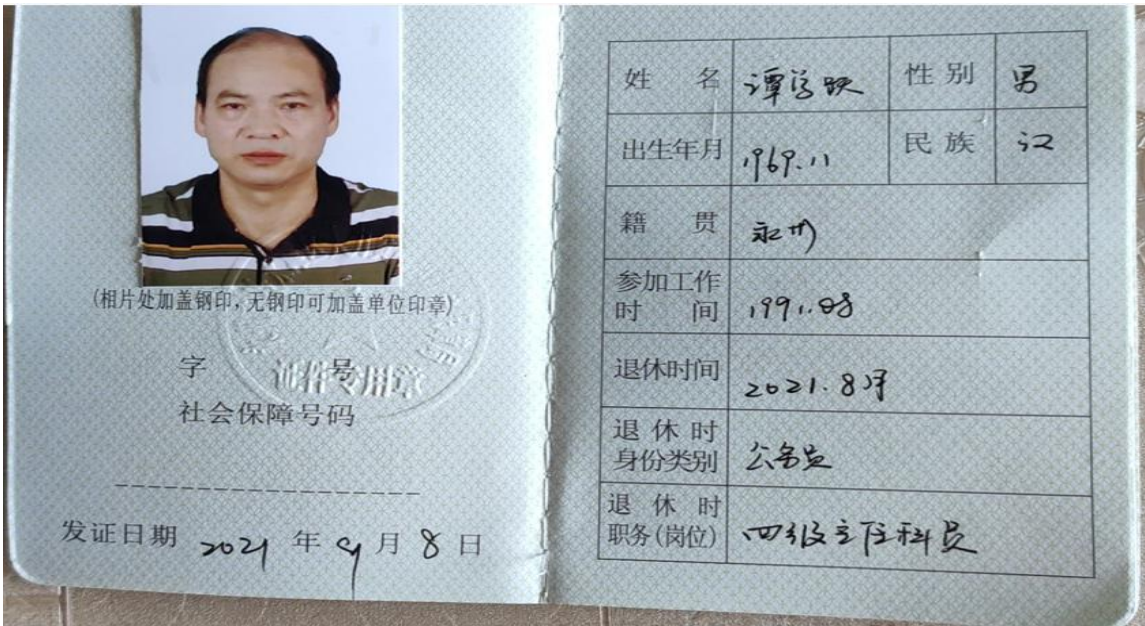 (相片处加盖钢印,无钢印可加盖单位印章)
证件专用章
字 号
社会保障号码
发证日期 2021 年 9 月 8 日
姓 名 谭学跃 性别 男
出生年月 1969.11 民族 汉
籍 贯 永州
参加工作
时 间 1991.08
退休时间 2021.8月
退休时
身份类别 公务员
退休时
职务(岗位) 四级主任科员